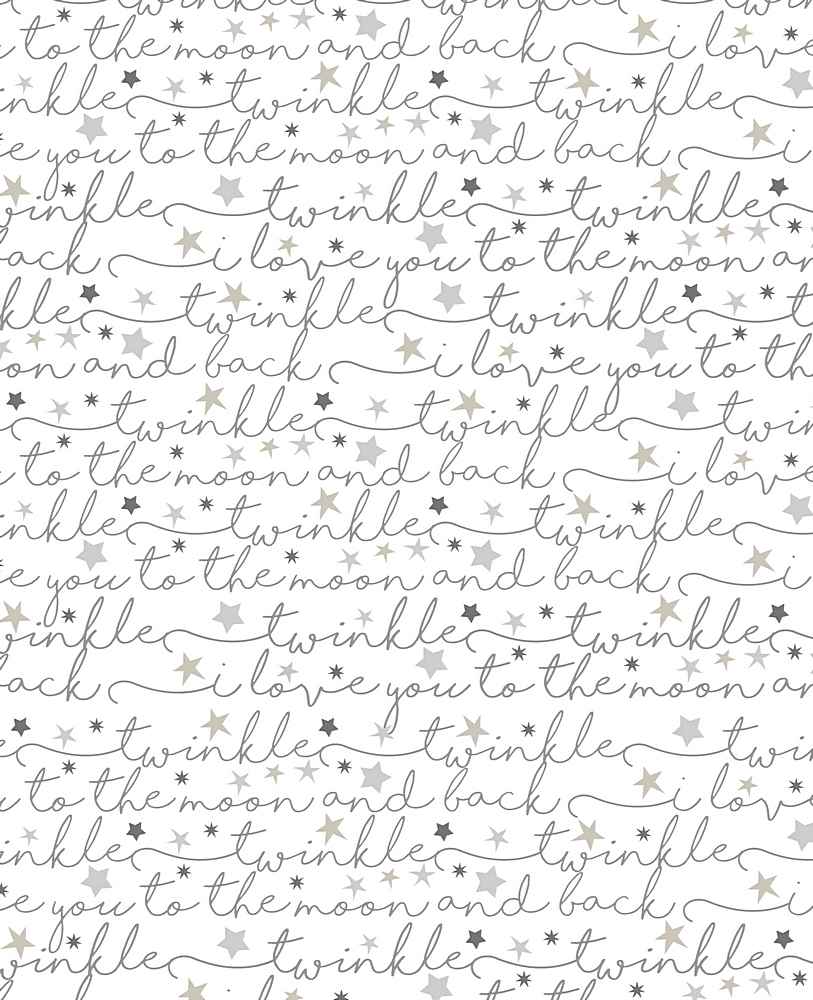 twinkle twinkle
to the moon and back i love
inkle twinkle twinkle
e you to the moon and back i
winkle twinkle twinkle
back i love you to the moon an
kle twinkle twinkle t
on and back i love you to th
twinkle twinkle twin
to the moon and back i love
inkle twinkle twinkle
e you to the moon and back i
winkle twinkle twinkle
back i love you to the moon an
e twinkle twinkle twin
to the moon and back i lov
inkle twinkle twinkle
e you to the moon and back i
winkle twinkle twinkle